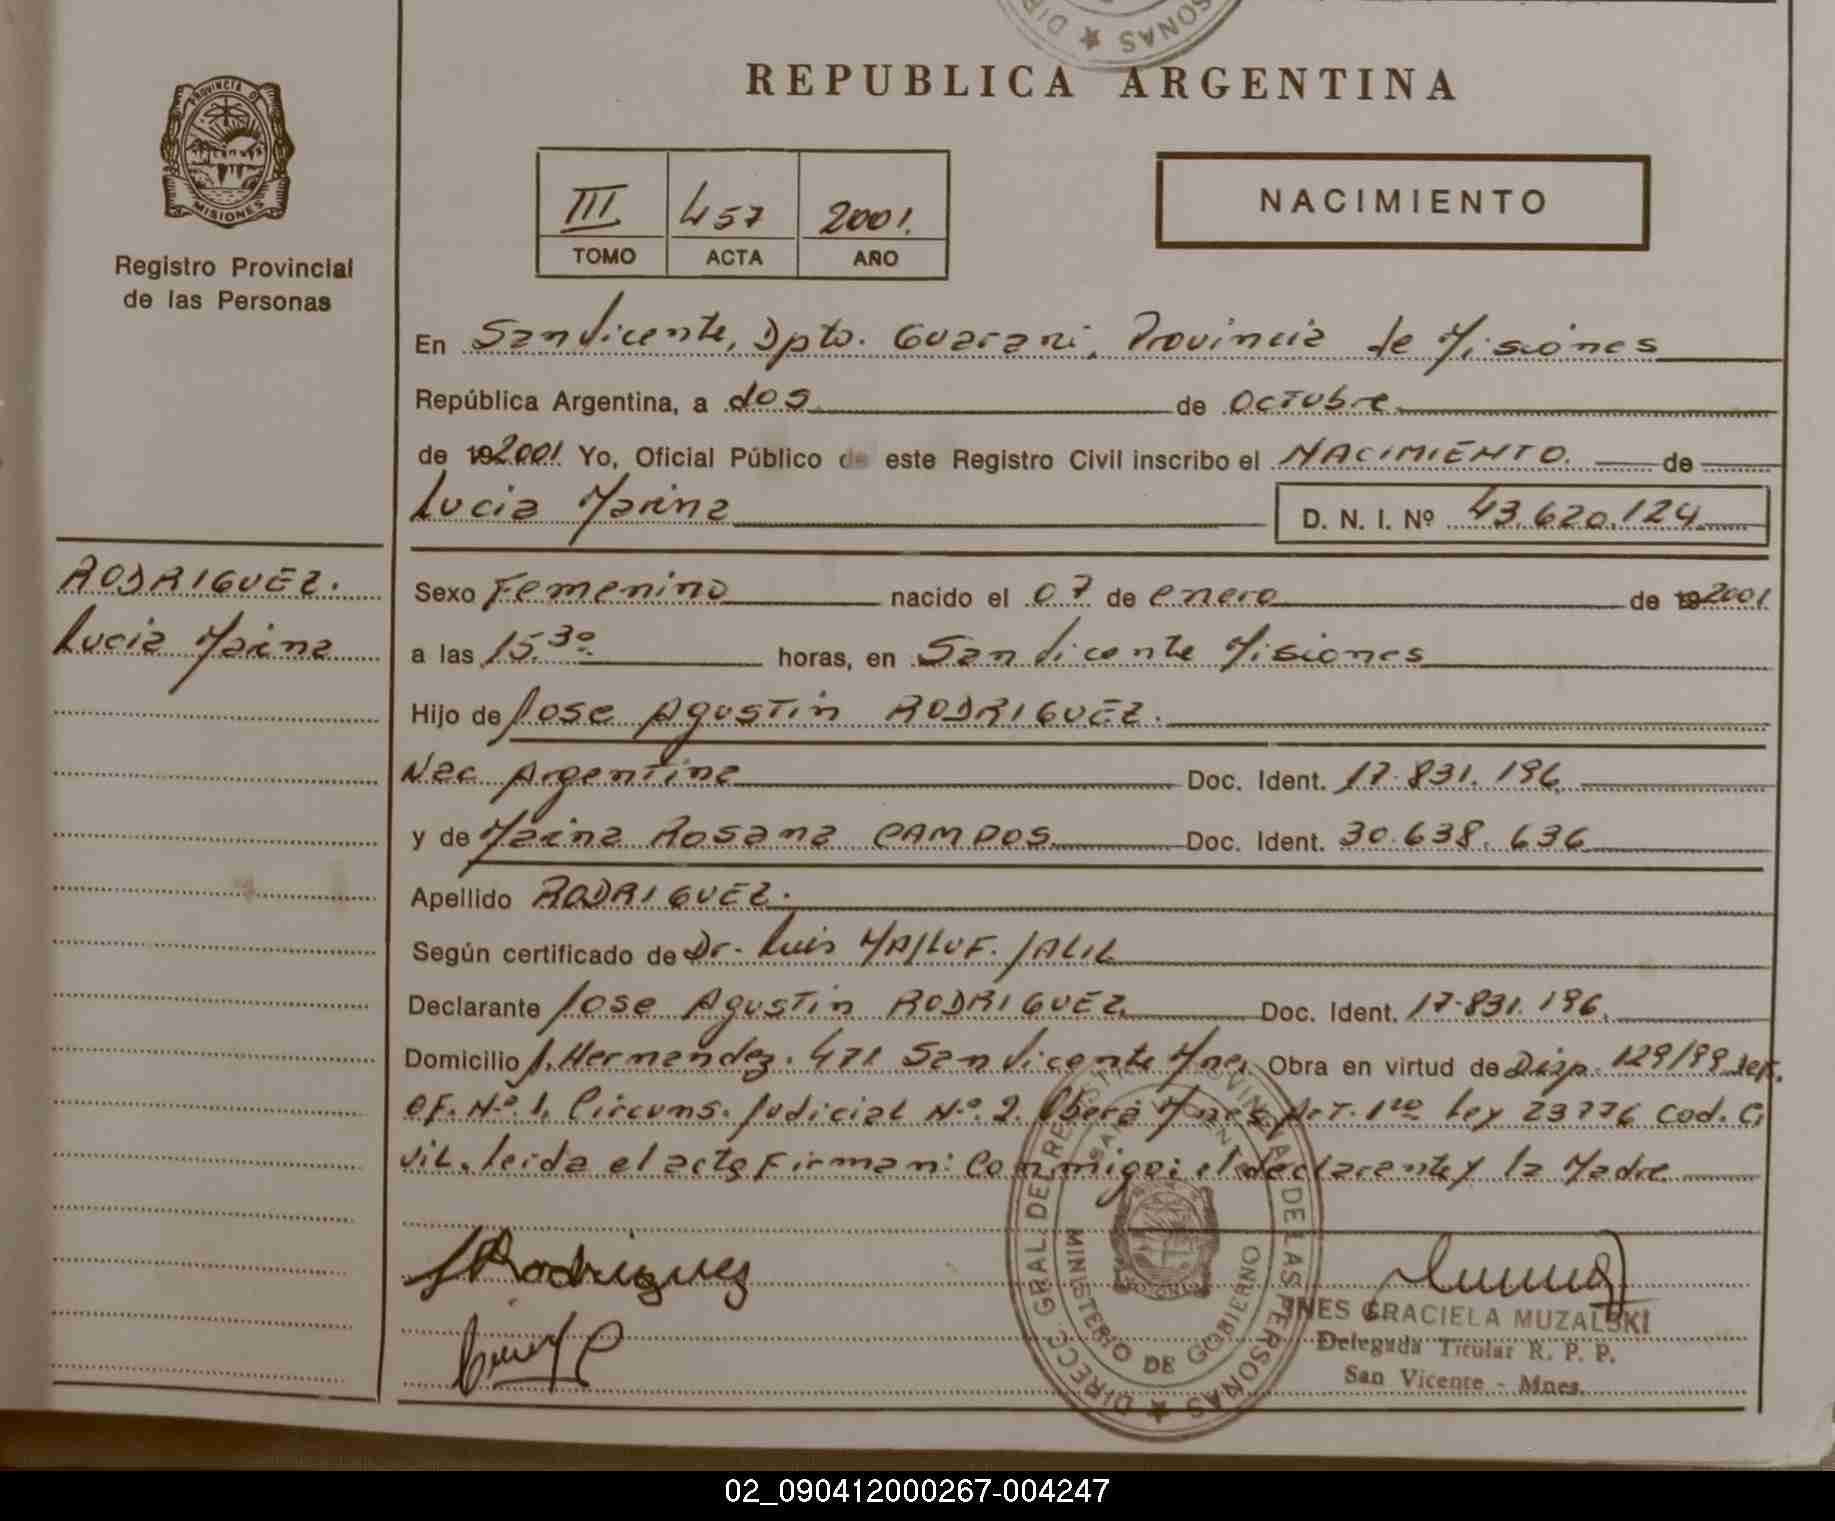 DIR SONAS
REPUBLICA ARGENTINA
PROVINCIA DE
MISIONES
Registro Provincial
de las Personas
III 457 2001.
TOMO ACTA AÑO
NACIMIENTO
En San Vicente, Dpto. Guarani, Provincia de Misiones
República Argentina, a dos de Octubre
de 192001. Yo, Oficial Público de este Registro Civil inscribo el NACIMIENTO. de
Lucia Marina
D. N. I. Nº 43.620.124
RODRIGUEZ.
Lucia Marina
Sexo Femenino nacido el 07 de enero de 192001
a las 15.30. horas, en San Vicente Misiones
Hijo de Jose Agustin RODRIGUEZ.
Nac Argentina Doc. Ident. 17.831.196
y de Marina Rosana CAMPOS. Doc. Ident. 30.638.636
Apellido RODRIGUEZ.
Según certificado de Dr. Luis MAJLUF. JALIL
Declarante Jose Agustin RODRIGUEZ. Doc. Ident. 17.831.196.
Domicilio J. Hernandez. 471 San Vicente Mnes. Obra en virtud de Disp. 129/99 Def.
OF. Nº 1. Circuns. Judicial Nº 2. Oberá Mnes Art. 1ro Ley 23776 Cod. Ci
vil. leida el acta Firman: Conmigo: el declarante y la Madre
JRodriguez
DIRECC. GRAL. DEL REGISTRO PROVINCIAL DE LAS PERSONAS
SAN VICENTE
MINISTERIO DE GOBIERNO
INES GRACIELA MUZALSKI
Delegada Titular R. P. P.
San Vicente - Mnes.
02_090412000267-004247